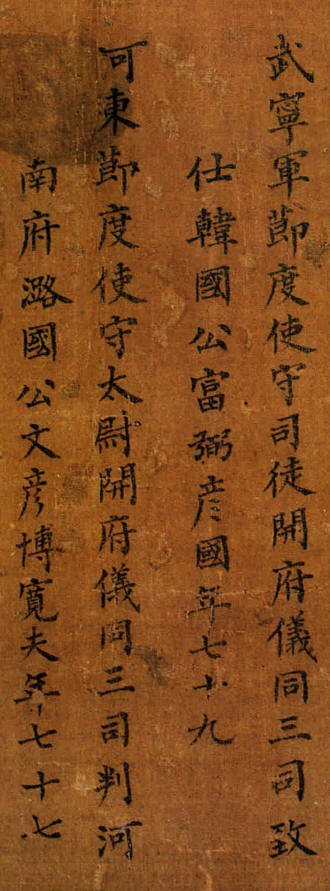 武寧軍莭度使守司徒開府儀同三司致
仕韓國公富弼彥國年七十九
可東莭度使守太尉開府儀同三司判河
南府潞國公文彥博寬夫年七十七